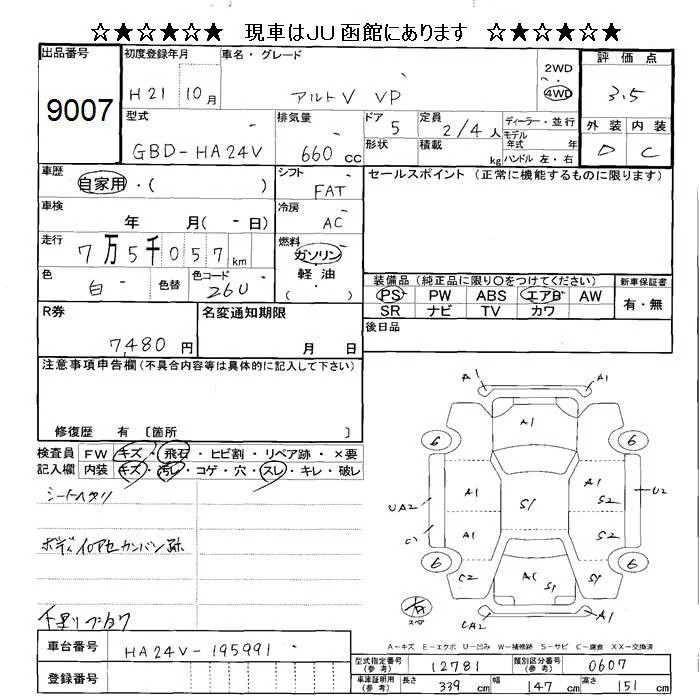 ☆★☆★☆★ 現車はJU函館にあります ☆★☆★☆★
出品番号 9007
初度登録年月 H21 10月
車名・グレード アルトV VP
2WD
4WD
評価点 3.5
外装 D 内装 C
型式 GBD-HA24V
排気量 660cc
ドア 5
形状
定員 2/4人
積載 kg
ディーラー・並行
モデル年式 年式
ハンドル 左・右
車歴 自家用・( )
シフト FAT
セールスポイント(正常に機能するものに限ります)
車検 年 月(-日)
冷房 AC
走行 7万5千057km
燃料 ガソリン
軽油
( )
色 白 色替 色コード 26U
装備品(純正品に限り〇をつけてください)
PS PW ABS エアB AW
SR ナビ TV カワ
新車保証書 有・無
R券 7,480円
名変通知期限 月 日
後日品
注意事項申告欄(不具合内容等は具体的に記入して下さい)
修復歴 有 〔箇所
検査員記入欄 FW キズ・飛石・ヒビ割・リペア跡・×要
内装 キズ・汚レ・コゲ・穴・スレ・キレ・破レ
シートヘタリ
ボディイロアセカンバン跡
下廻りフタワ
車台番号 HA24V-195991
登録番号
A A1
A1
6 6
A1 A1
UA2 S1 S2 U2
C1 A1 S2
6 6
C2 AC S1 S1
スペア
CA2 A1
A-キズ E-エクボ U-凹み W-補修跡 S-サビ C-腐食 XX-交換済
型式指定番号(参考) 12781 類別区分番号(参考) 0607
車庫証明用(参考) 長さ 339cm 幅 147cm 高さ 151cm